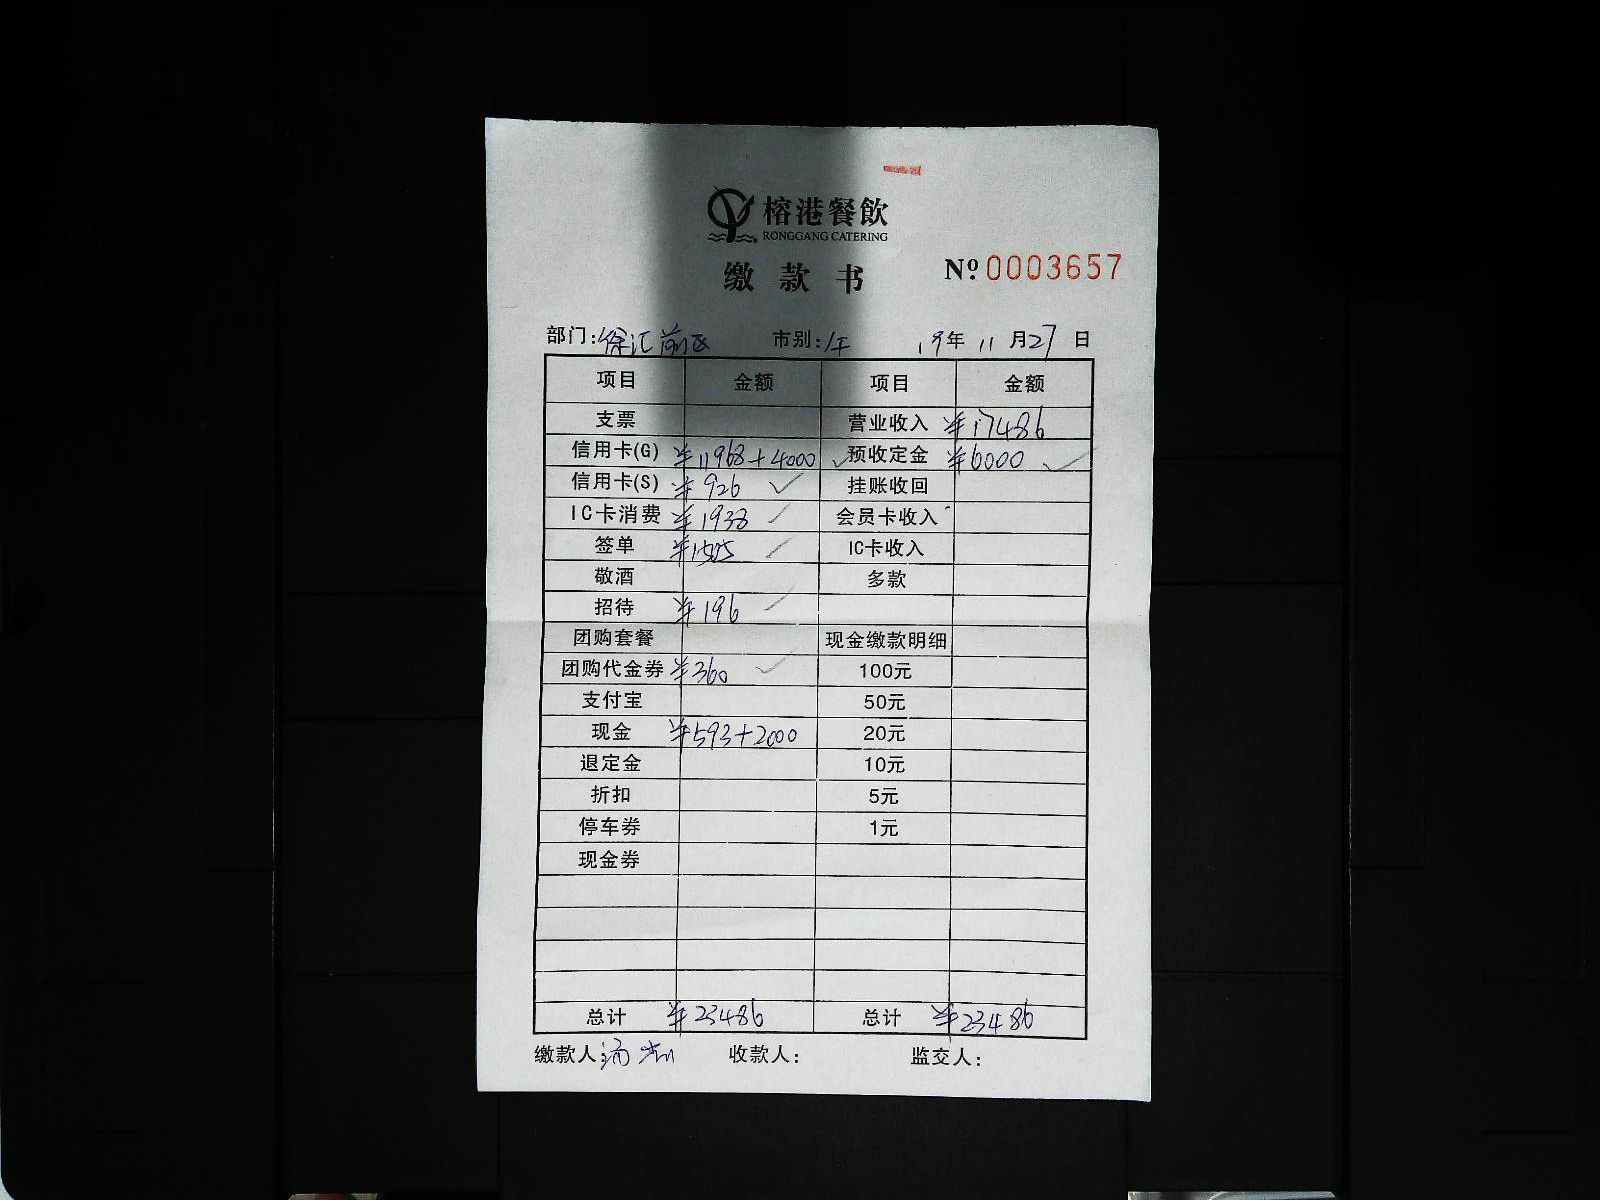 榕港餐飲
RONGGANG CATERING
缴款书 Nº 0003657
部门:徐汇前区 市别:午 19年 11月27日
项目 金额 项目 金额
支票 营业收入 ¥17486
信用卡(G) ¥11968+4000 预收定金 ¥6000
信用卡(S) ¥926 挂账收回
IC卡消费 ¥1938 会员卡收入
签单 ¥1505 IC卡收入
敬酒 多款
招待 ¥196
团购套餐 现金缴款明细
团购代金券 ¥360 100元
支付宝 50元
现金 ¥593+2000 20元
退定金 10元
折扣 5元
停车券 1元
现金券
总计 ¥23486 总计 ¥23486
缴款人: 收款人: 监交人: